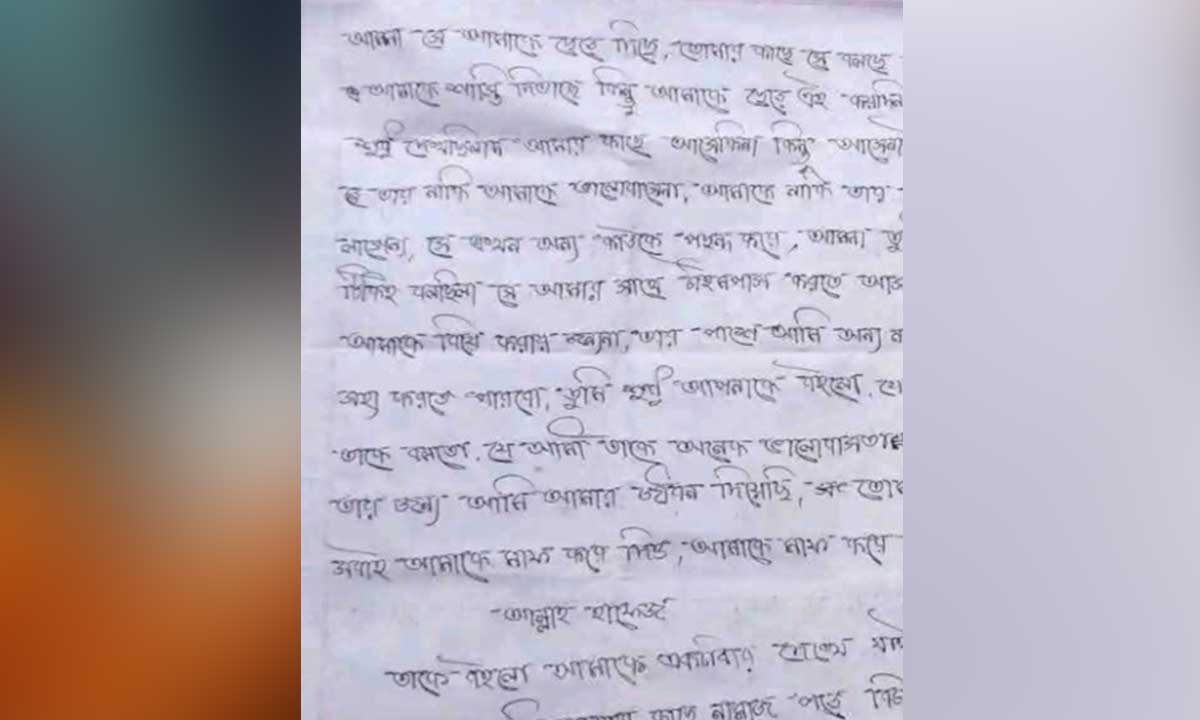 আম্মা সে আমাকে ছেড়ে দিছে, তোমার কাছে সে বলছে
আমাকে শাস্তি দিতাছে কিন্তু আমাকে ছেড়ে এই কয়দিন
আমার কাছে আসেনি কিন্তু
তার নাকি আমাকে ভালোবাসেনা, আমাকে নাকি তার
লাগেনা, সে এখন অন্য কাউকে পছন্দ করে, আম্মা
ঠিকই বলছিলা সে আমার সাথে টাইমপাস করতে
আমাকে বিয়ে করার জন্যনা, তার পাশে আমি অন্য
সহ্য করতে পারবো, তুমি শুধু আপনাকে বইলো
তাকে বলতো যে আমি তাকে অনেক ভালোবাসতাম
তার জন্য আমি আমার জীবন দিয়েছি,
সবাই আমাকে মাফ করে দিও, আমাকে মাফ করে
আল্লাহ হাফেজ
তাকে বইলো আমাকে একটাবার দেখে
নামাজ পড়ে